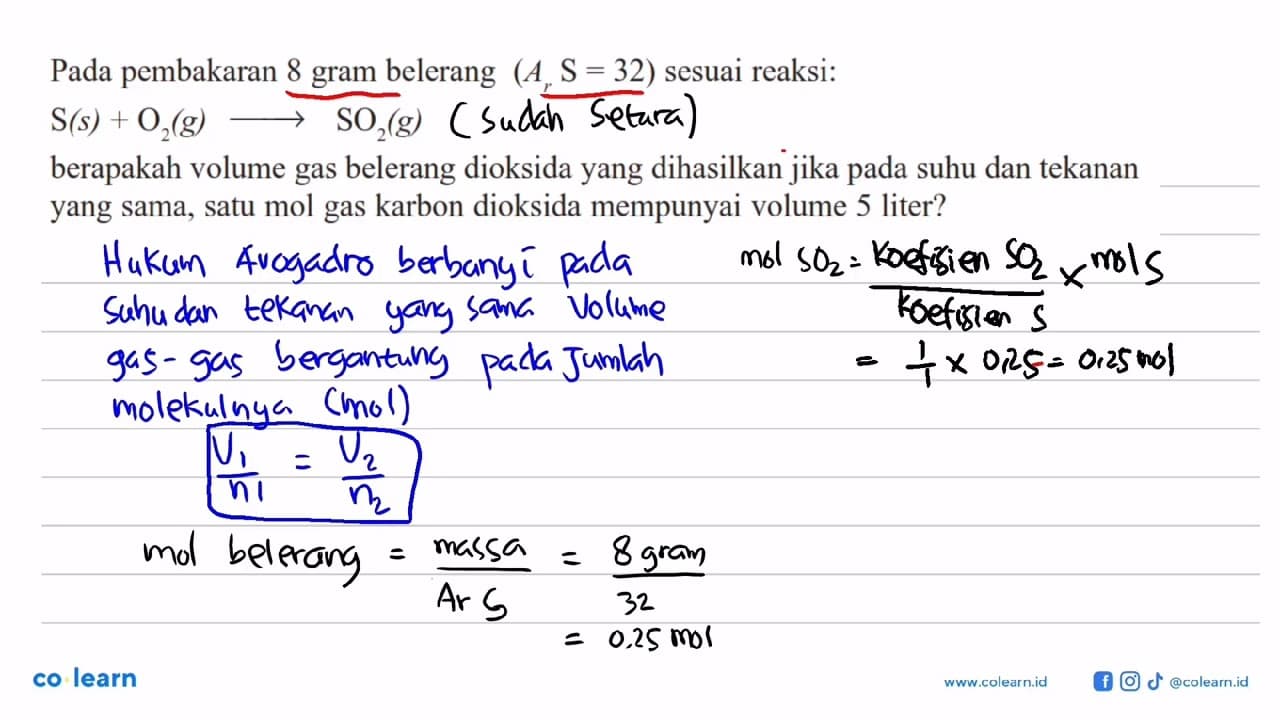 Pada pembakaran 8 gram belerang (Ar S = 32) sesuai reaksi:
S(s) + O2(g) ⟶ SO2(g) (Sudah Setara)
berapakah volume gas belerang dioksida yang dihasilkan jika pada suhu dan tekanan
yang sama, satu mol gas karbon dioksida mempunyai volume 5 liter?
Hukum Avogadro berbanyi pada
Suhu dan tekanan yang sama Volume
gas-gas bergantung pada Jumlah
molekulnya (mol)
V1/n1 = V2/n2
mol belerang = massa/Ar S = 8 gram/32
= 0.25 mol
mol SO2 = Koefisien SO2/Koefisien S × mol S
= 1/1 × 0,25 = 0,25 mol
co learn
www.colearn.id
@colearn.id